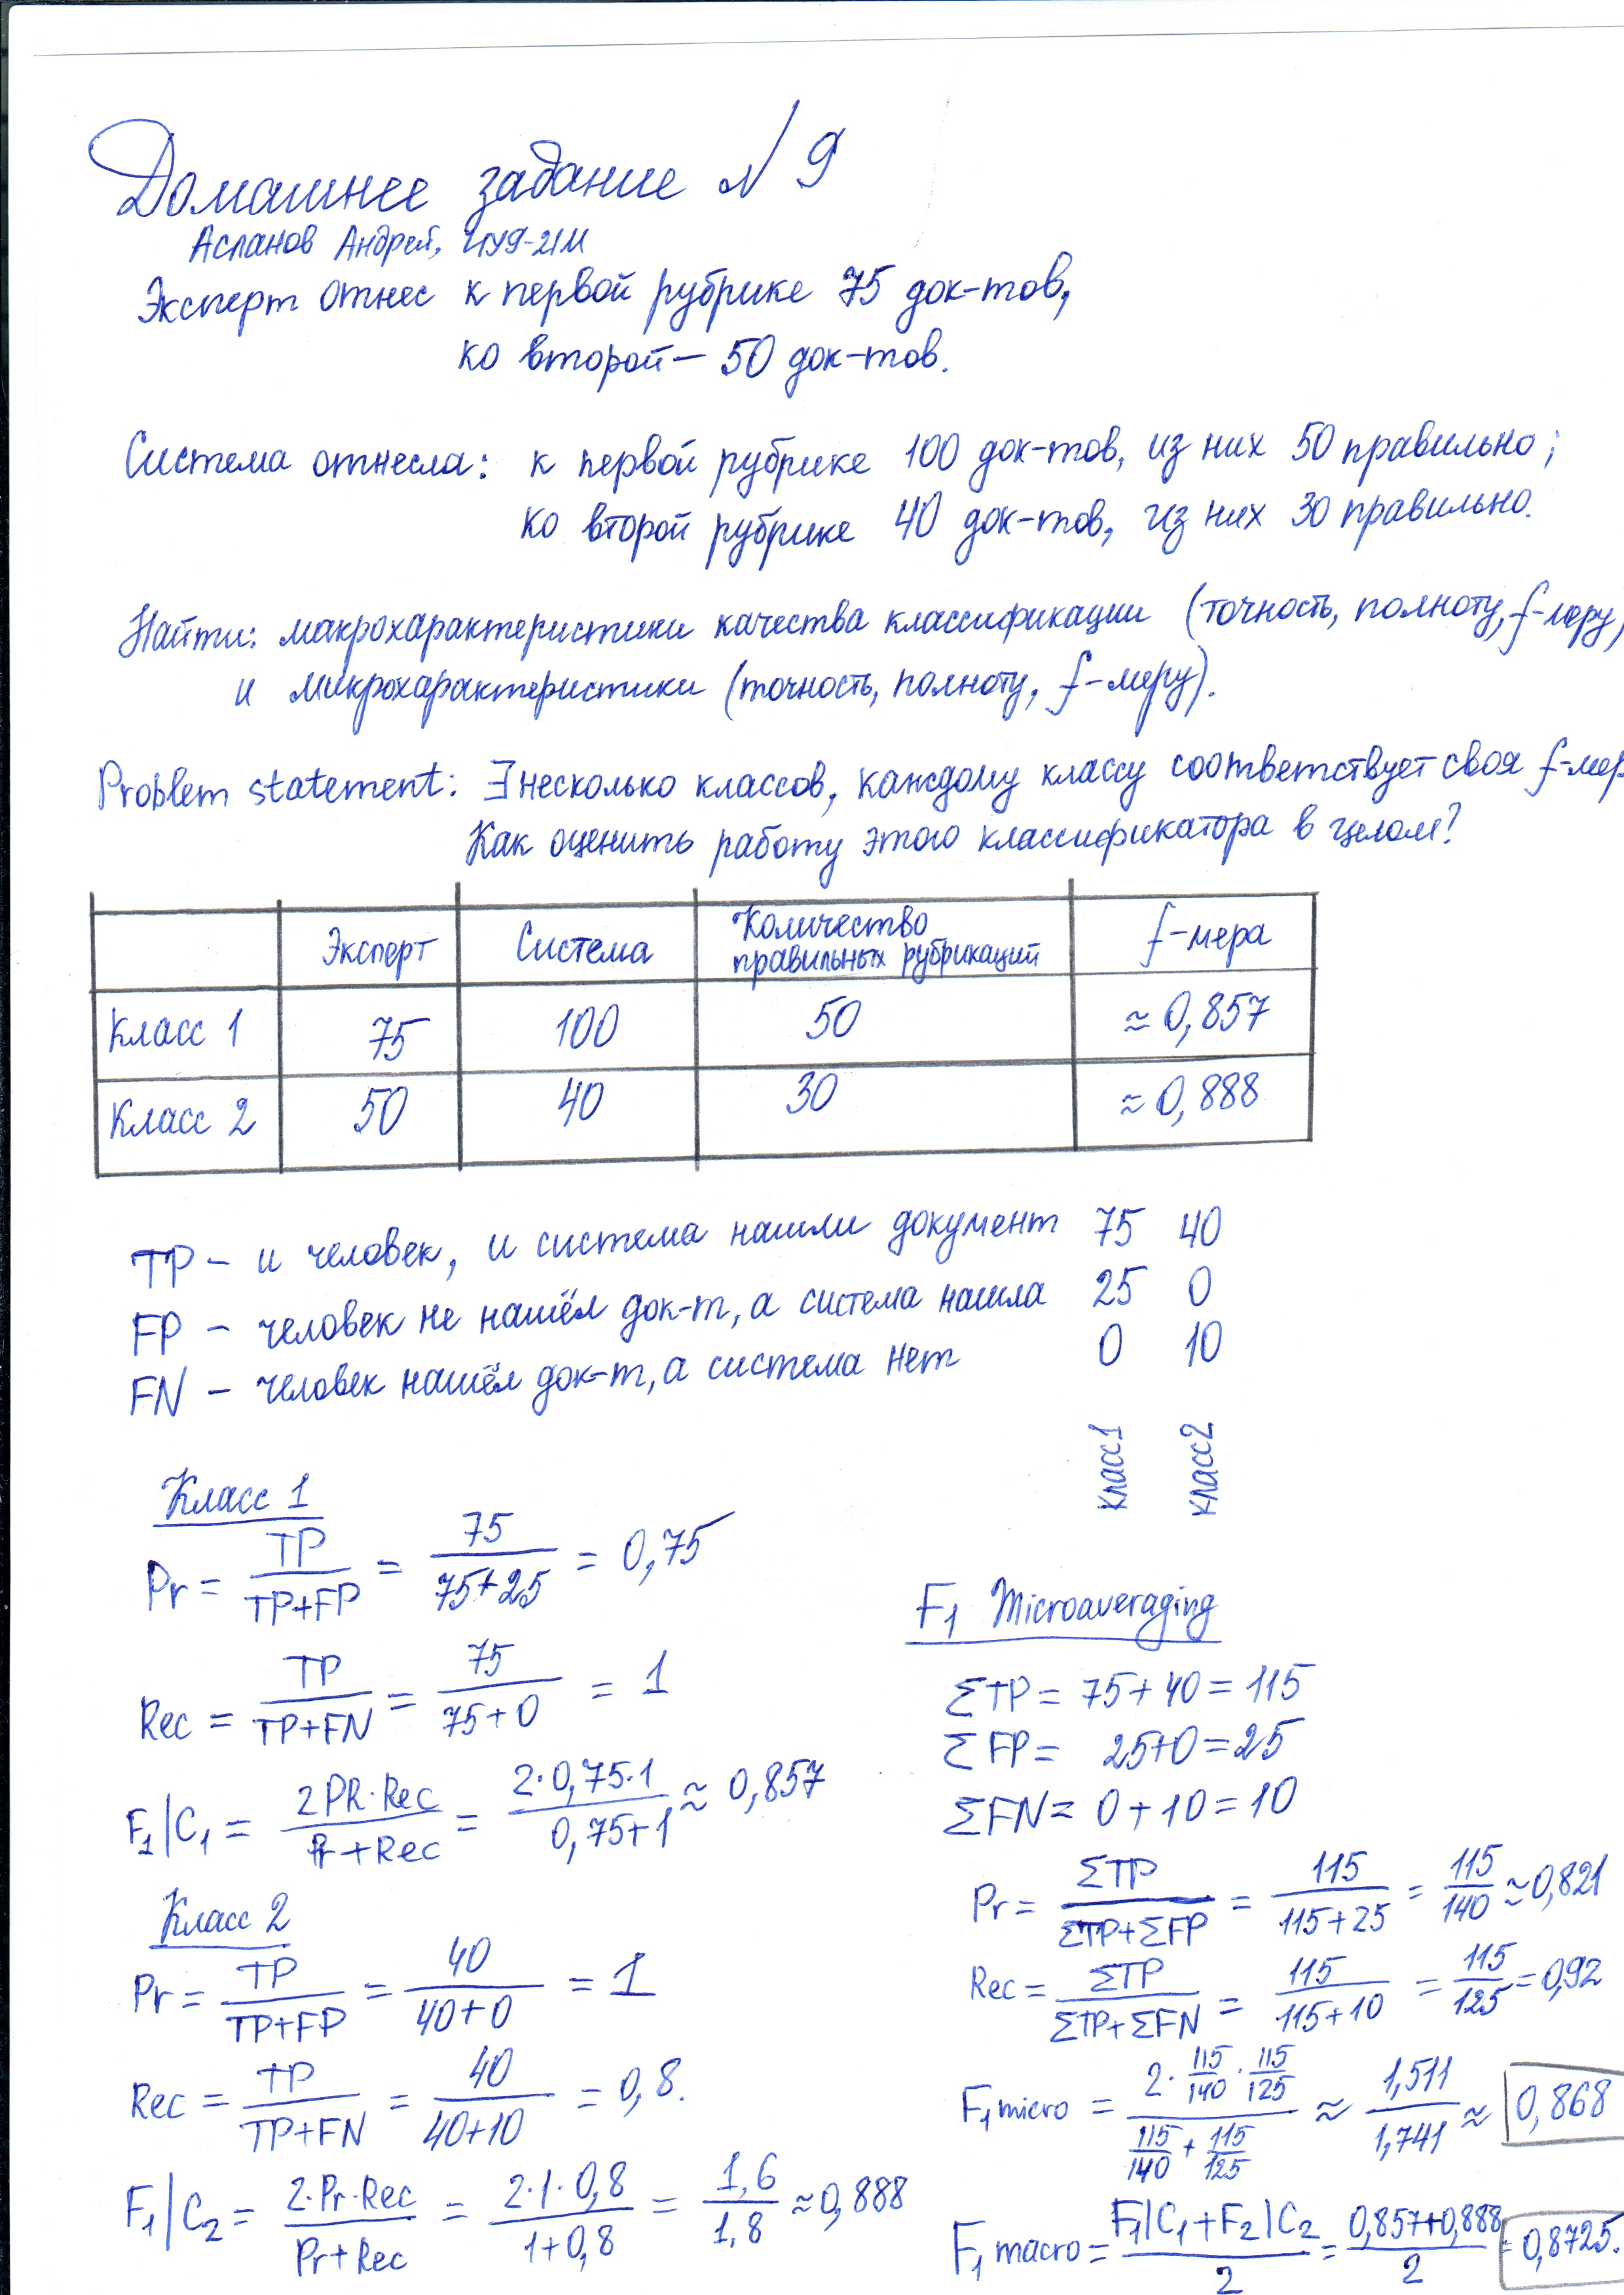 Домашнее задание № 9
Асланов Андрей, ИУ9-21М
Эксперт отнес к первой рубрике 75 док-тов,
ко второй — 50 док-тов.
Система отнесла: к первой рубрике 100 док-тов, из них 50 правильно;
ко второй рубрике 40 док-тов, из них 30 правильно.
Найти: макрохарактеристики качества классификации (точность, полноту, f-меру)
и микрохарактеристики (точность, полноту, f-меру).
Problem statement: ∃ несколько классов, каждому классу соответствует своя f-мер
Как оценить работу этого классификатора в целом?
Эксперт Система Количество правильных рубрикаций f-мера
Класс 1 75 100 50 ≈ 0,857
Класс 2 50 40 30 ≈ 0,888
TP – и человек, и система нашли документ 75 40
FP – человек не нашёл док-т, а система нашла 25 0
FN – человек нашёл док-т, а система нет 0 10
класс1 класс2
Класс 1
Pr = TP/(TP+FP) = 75/(75+25) = 0,75
Rec = TP/(TP+FN) = 75/(75+0) = 1
F1|C1 = 2PR·Rec/(Pr+Rec) = 2·0,75·1/(0,75+1) ≈ 0,857
Класс 2
Pr = TP/(TP+FP) = 40/(40+0) = 1
Rec = TP/(TP+FN) = 40/(40+10) = 0,8.
F1|C2 = 2·Pr·Rec/(Pr+Rec) = 2·1·0,8/(1+0,8) = 1,6/1,8 ≈ 0,888
F1 Microaveraging
ΣTP = 75+40 = 115
ΣFP = 25+0 = 25
ΣFN = 0+10 = 10
Pr = ΣTP/(ΣTP+ΣFP) = 115/(115+25) = 115/140 ≈ 0,821
Rec = ΣTP/(ΣTP+ΣFN) = 115/(115+10) = 115/125 = 0,92
F1 micro = (2·115/140·115/125)/(115/140+115/125) ≈ 1,511/1,741 ≈ 0,868
F1 macro = (F1|C1+F2|C2)/2 = (0,857+0,888)/2 = 0,8725.